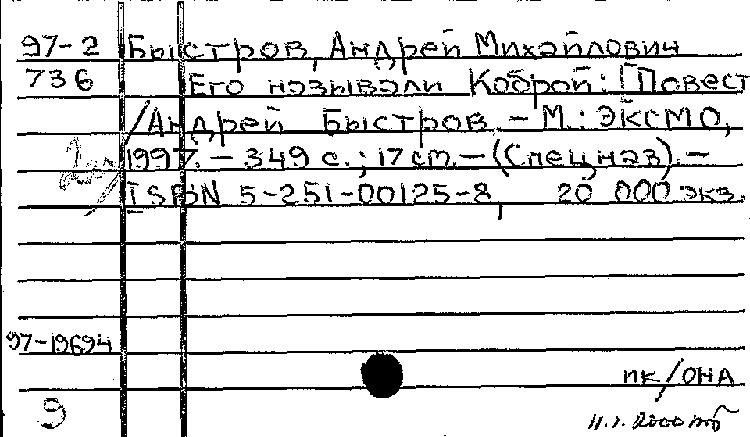 97-2 Быстров, Андрей Михайлович
736 Его называли Коброй: [Повест
/Андрей Быстров. - М.: ЭКСМО,
1997. - 349 с.; 17 см. - (Спецназ). -
ISBN 5-251-00125-8, 20 000 экз.
97-19694
ПК/ОНА
9